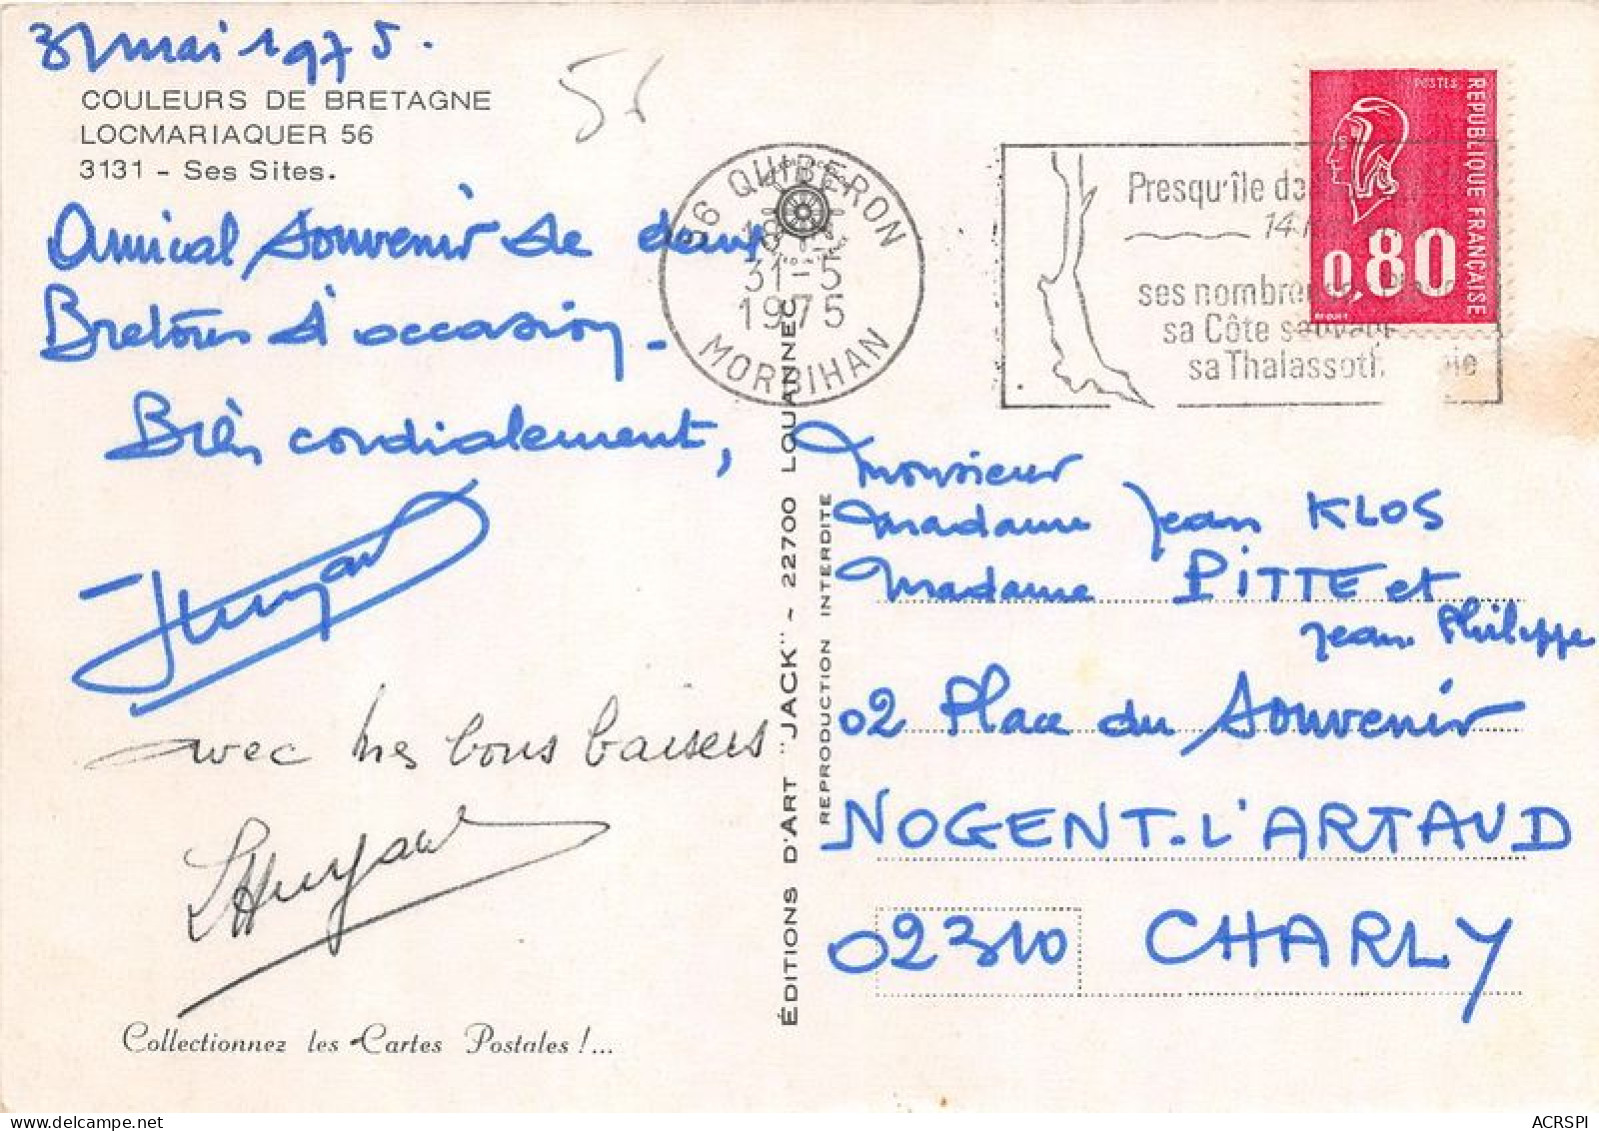 31 mai 1975.
COULEURS DE BRETAGNE
LOCMARIAQUER 56
3131 - Ses Sites.
56
Amical souvenir de deux
Bretons d'occasion -
Bien cordialement,
avec mes bons baisers
Collectionnez les Cartes Postales !...
ÉDITIONS D'ART "JACK" - 22700 LOUANNEC
REPRODUCTION INTERDITE
56 QUIBERON
31-5
1975
MORBIHAN
Presqu'île de
14
ses nombreuses
sa Côte sauvage
sa Thalassothérapie
POSTES
REPUBLIQUE FRANÇAISE
0,80
Monsieur
Madame Jean KLOS
Madame PITTE et
Jean Philippe
02 Place du Souvenir
NOGENT-L'ARTAUD
02310 CHARLY
ACRSPI